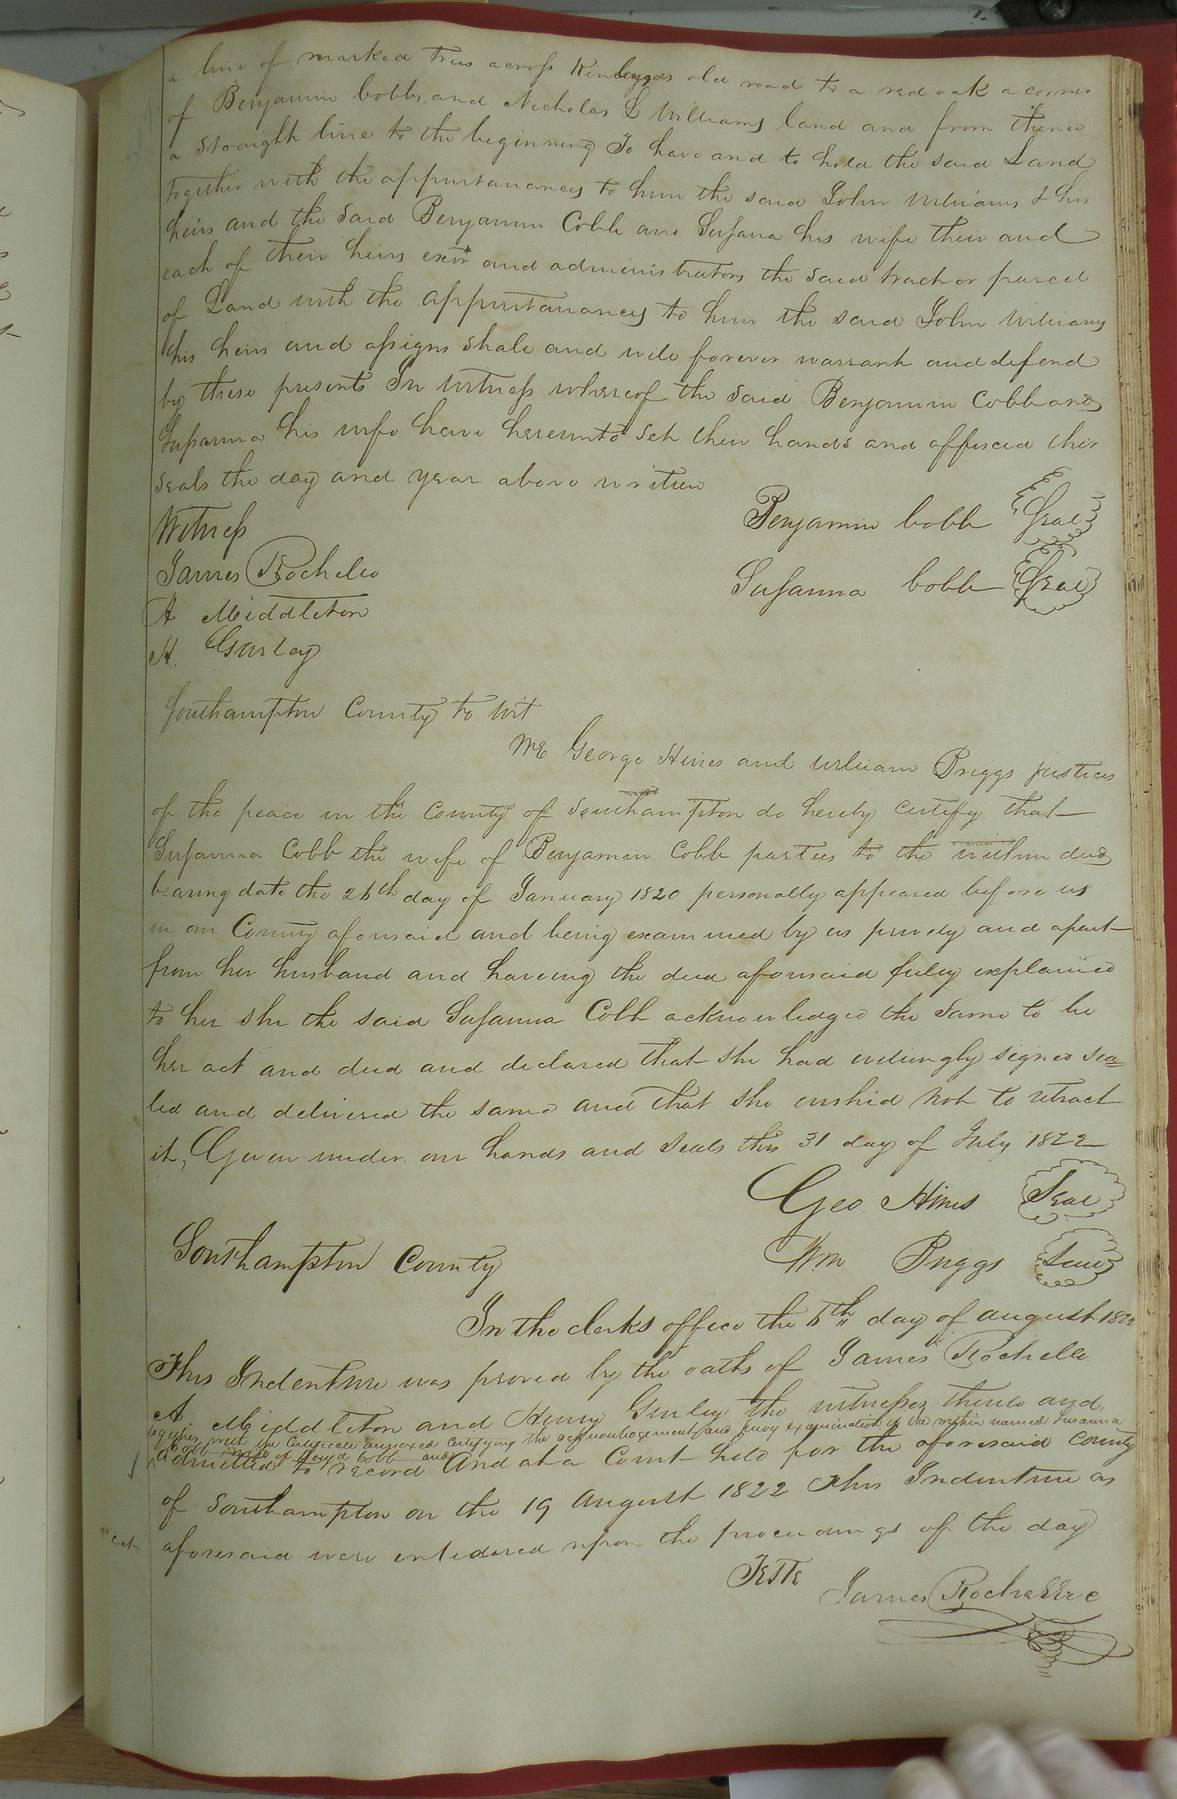 a line of marked trees across old road to a red oak a corner
of Benjamin Cobbs and Nicholas L Williams land and from thence
a straight line to the beginning To have and to hold the said Land
together with the appurtanances to him the said John Williams & his
heirs and the said Benjamin Cobb and Susana his wife their and
each of their heirs exrs and administrators the said tract or parcel
of Land with the appurtanances to him the said John Williams
his heirs and assigns shall and will forever warrant and defend
by these presents In Witness whereof the said Benjamin Cobb and
Susanna his wife have hereunto set their hands and affixed their
seals the day and year above written
Witness
Benjamin Cobb Seal
James Rochelle
Susanna Cobb Seal
A Middleton
H. Gurley
Southampton County to wit
We George Hines and William Briggs justices
of the peace in the County of Southampton do hereby certify that
Susanna Cobb the wife of Benjamin Cobb parties to the within deed
bearing date the 26th day of January 1820 personally appeared before us
in our County aforesaid and being examined by us privily and apart
from her husband and haveing the deed aforesaid fully explained
to her she the said Susanna Cobb acknowledged the same to be
her act and deed and declared that she had willingly signed sea=
led and delivered the same and that she wishid not to retract
it, Given under our hands and seals this 31 day of July 1822
Geo. Hines Seal
Wm Briggs Seal
Southampton County
In the clerks office the 5th day of august 1822
This Indenture was proved by the oaths of James Rochelle
A Middleton and Henry Gurley the witnesses thereto and
together with the Certificate annexed Certifying the acknowledgement and privy examination of the within named Susanna
Cobb wife of Benja Cobb and
admitted to record And at a Court held for the aforesaid County
of Southampton on the 19 August 1822 This Indenture as
aforesaid were entedered upon the proceedings of the day
Teste
James Rochelle